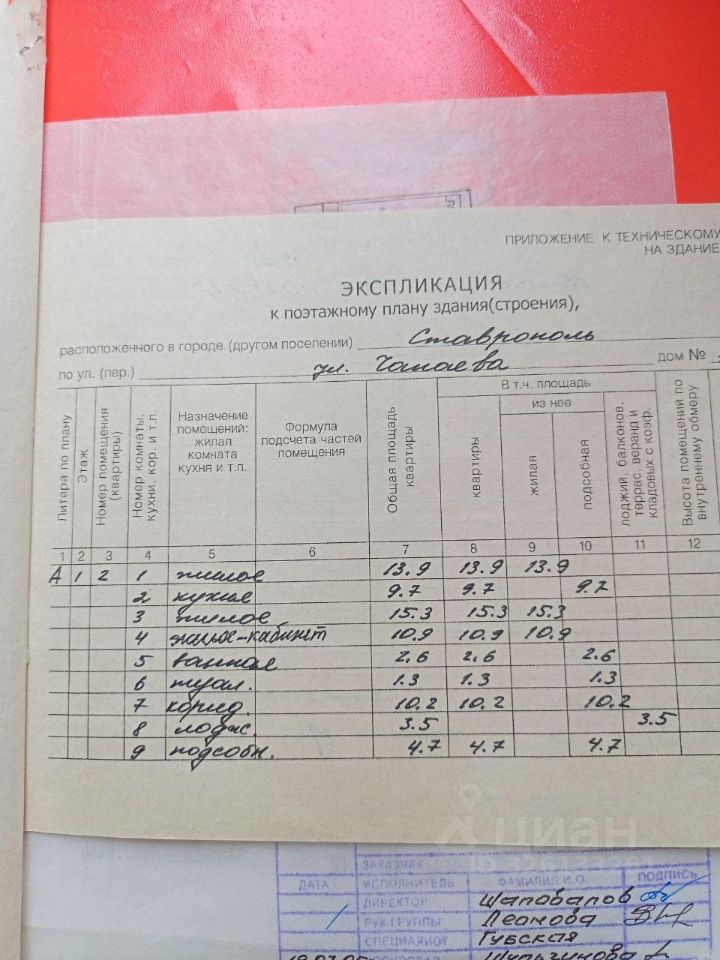 ПРИЛОЖЕНИЕ К ТЕХНИЧЕСКОМУ
НА ЗДАНИЕ
ЭКСПЛИКАЦИЯ
к поэтажному плану здания(строения),
расположенного в городе (другом поселении) Ставрополь
по ул. (пер.) ул. Чапаева дом №
Литера по плану
Этаж
Номер помещения (квартиры)
Номер комнаты, кухни, кор. и т.п.
Назначение помещений: жилая комната кухня и т.п.
Формула подсчета частей помещения
Общая площадь квартиры
В т.ч. площадь
квартиры
из нее
жилая
подсобная
лоджий, балконов, террас, веранд и кладовых с коэф.
Высота помещений по внутреннему обмеру
1 2 3 4 5 6 7 8 9 10 11 12
А 1 2 1 жилое 13.9 13.9 13.9
2 кухня 9.7 9.7 9.7
3 жилое 15.3 15.3 15.3
4 жилое-кабинет 10.9 10.9 10.9
5 ванная 2.6 2.6 2.6
6 туал. 1.3 1.3 1.3
7 корид. 10.2 10.2 10.2
8 лодж. 3.5 3.5
9 подсобн. 4.7 4.7 4.7
циан
ЗАКАЗЧИК
ДАТА ИСПОЛНИТЕЛЬ ФАМИЛИЯ И.О. ПОДПИСЬ
ДИРЕКТОР Шаповалов
РУК.ГРУППЫ Леонова
СПЕЦИАЛИСТ Губская
Шульгинова